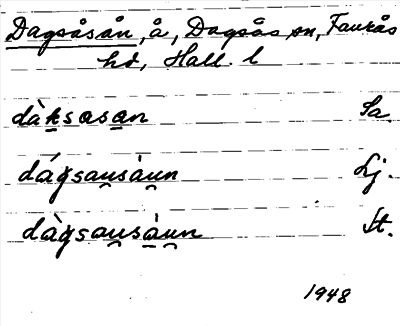 Dagsåsån, å, Dagsås sn, Faurås
hd, Hall. l
dàksasan Sa.
dágsau̯sàu̯n Lj.
dàgsau̯sàu̯n St.
1948